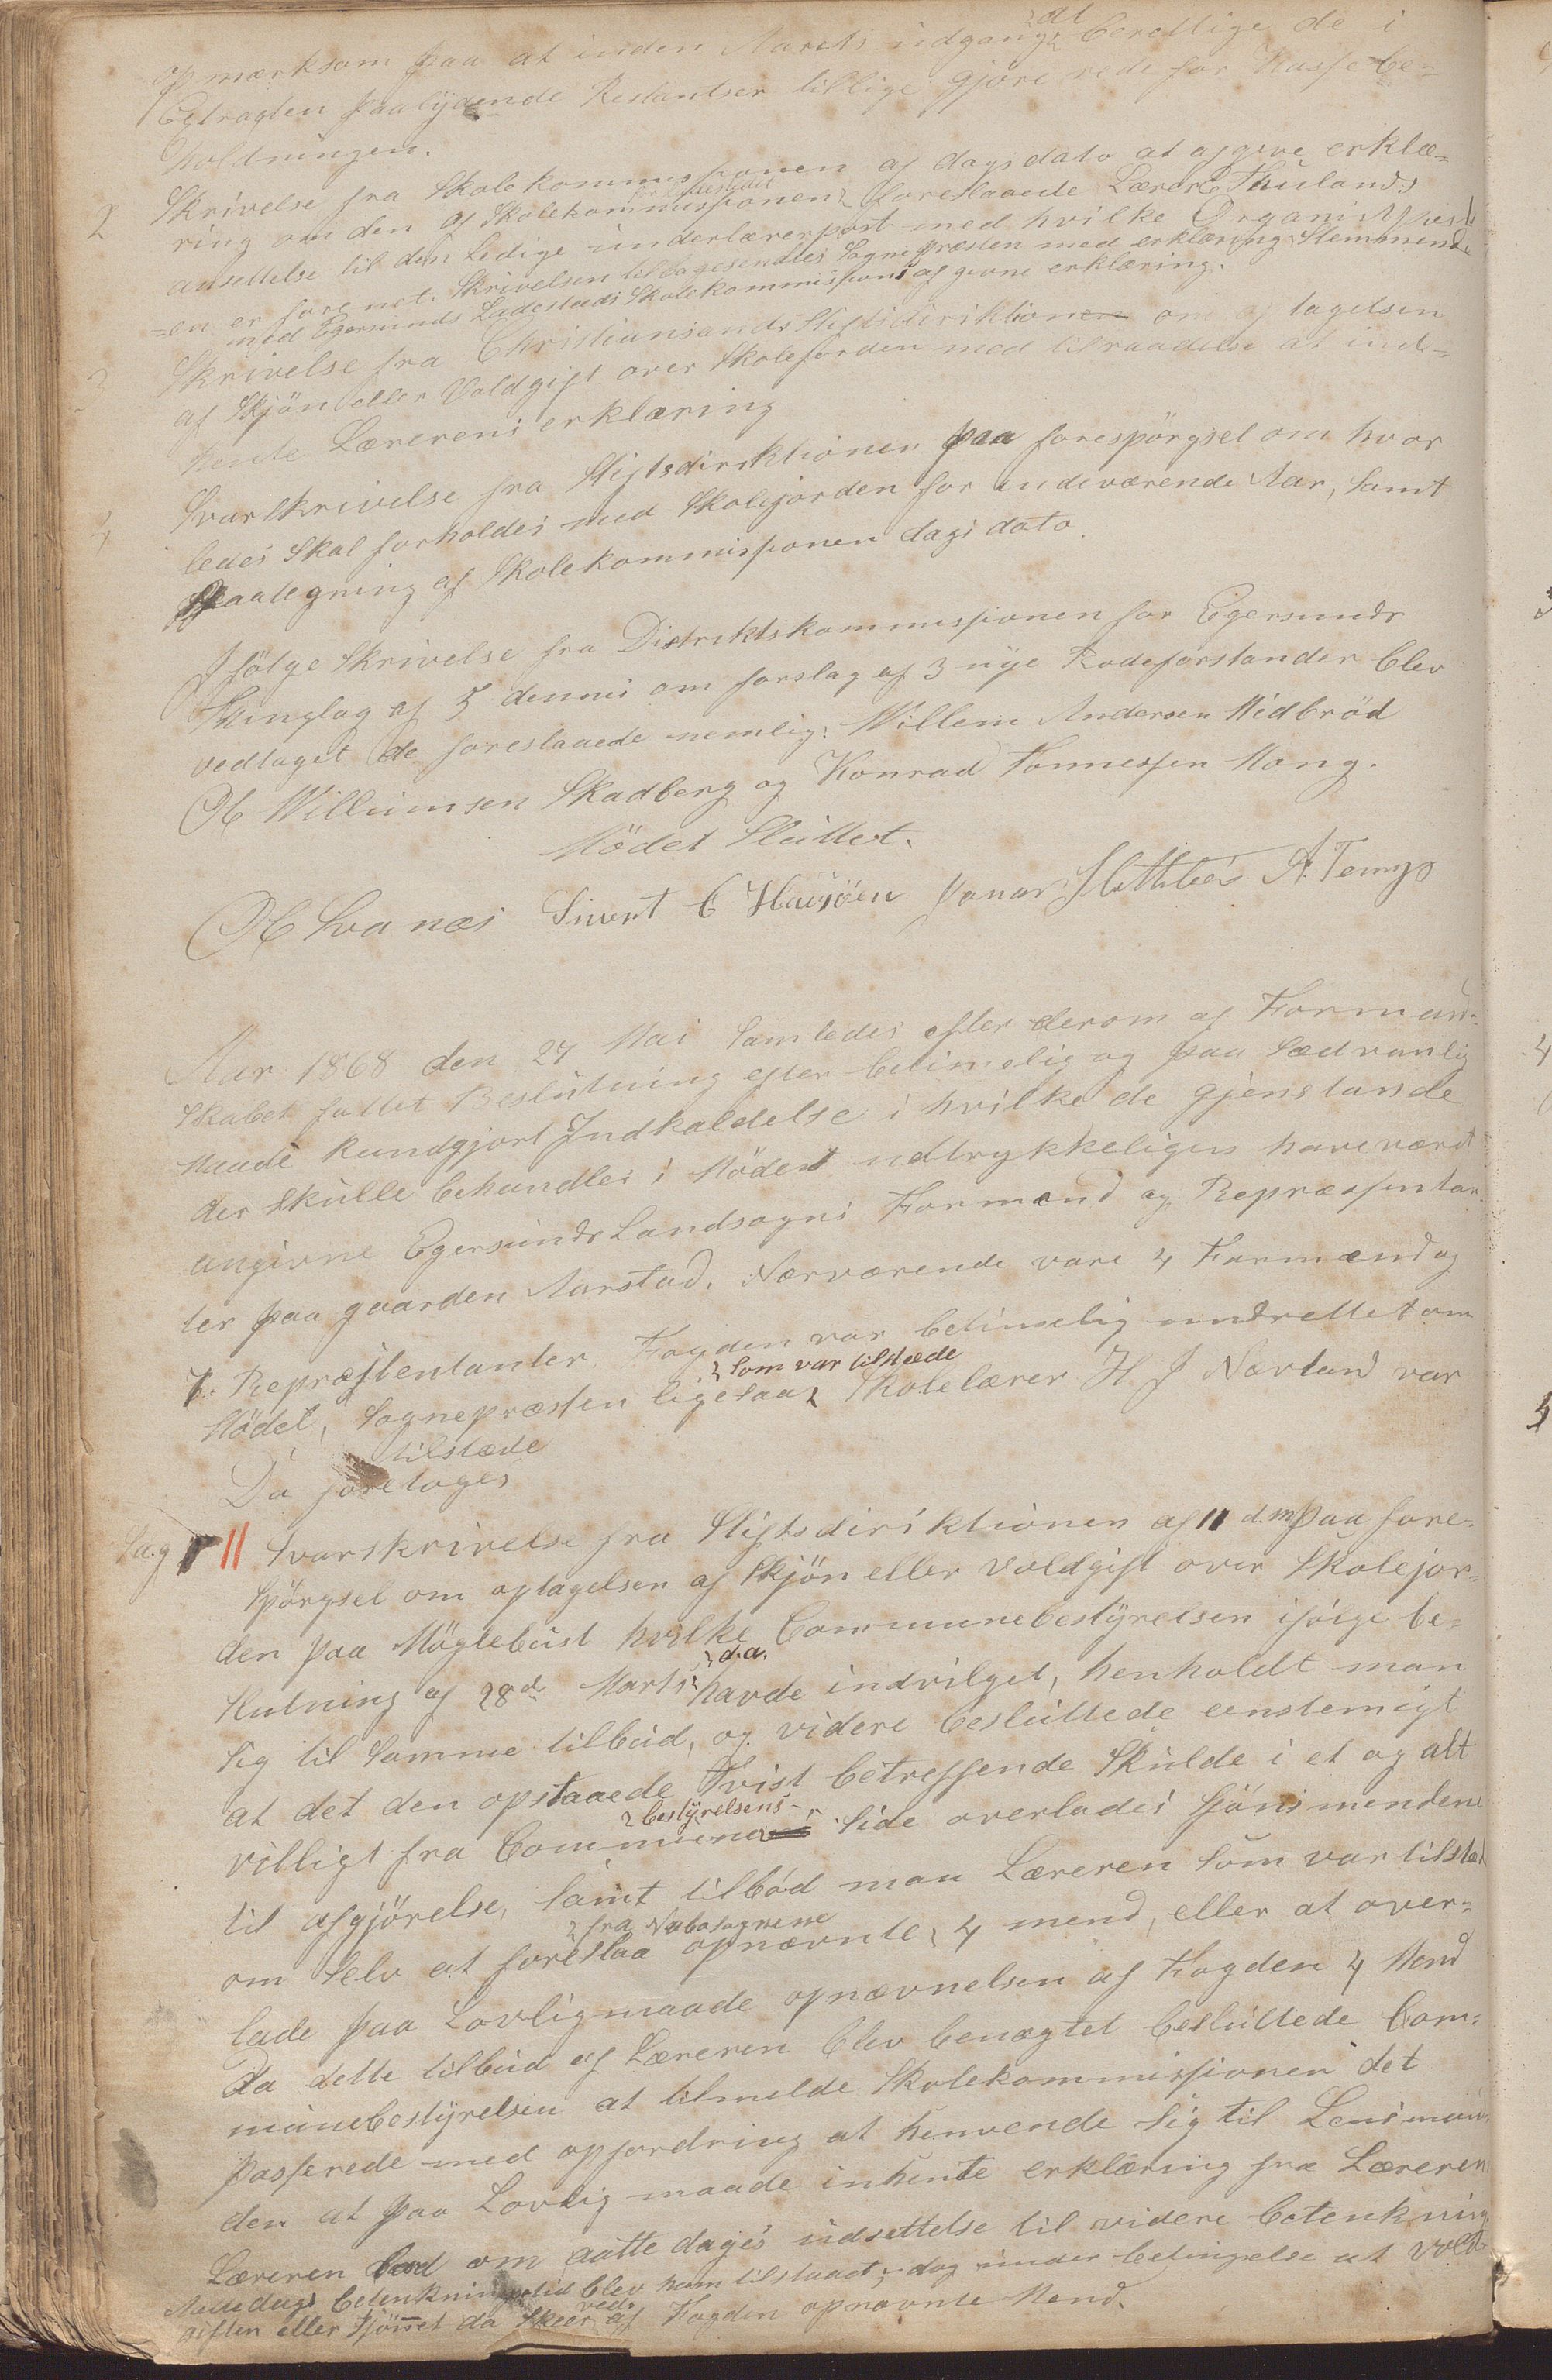 opmærksom paa at inden Aarets udgang at berettige de i
Betragten paalydende Restantser tillige gjøre rede for Kassebe-
holdningen.
2 Skrivelse fra Skolekommissionen af dagsdato at afgive erklæ-
ring om den af Skolekommissionen foreslaaede Lærer Thulands
ansettelse til den Ledige underlærerpost med hvilke Organistpost-
=en er forenet. Skrivelsen tilbagesendtes Sognepræsten med erklæring Stemmende
med Egersunds Ladesteds Skolekommissions afgivne erklæring.
3 Skrivelse fra Christiansands Stiftsdirektionen om optagelsen
af Skjön eller Voldgift over Skolejorden med tilraadelse at ind-
hente Lærerens erklæring
4 Svarskrivelse fra Stiftsdirektionen paa forespörgsel om hvor
ledes Skal forholdes med Skolejorden for indeværende Aar, Samt
Paategning af Skolekommissionen dags dato.
Ifölge Skrivelse fra Distriktskommissionen for Egersunds
Thinglag af 5 dennes om forslag af 3 nye Rodeforstander blev
vedtaget de foreslaaede nemlig: Willem Andersen Midbröd
Ol Willumsen Skadberg og Konrad Tonnessen Mong.
Mödet Sluttet.
Ol Svanæs Sivert C Havsöen Jonas Slettebö A. Tengs
Aar 1868 den 27 Mai Samledes efter derom af Formand-
skabet fattet Beslutning efter betimelig og paa Sædvanlig
Maade kundgjort Indkaldelse i hvilke de gjenstande
der skulle behandles i Mödet udtrykkeligen have været
angivne Egersunds Landsogns Formænd og Repræssentan-
ter paa gaarden Aarstad. Nærværende vare 4 Formænd og
7 Repræsentanter Fogden var betimelig underrettet om
Mödet, Sognepræsten ligesaa som var tilstæde Skolelærer H. J Nevland var
tilstæde
Da foretoges
Sag 1 Svarskrivelse fra Stiftsdirektionen af 11 d.m. paa fore-
spörgsel om optagelsen af Skjön eller voldgift over Skolejor-
den paa Mögleböst hvilke Communebestyrelsen ifölge be-
slutning af 28de Marts d.a. havde indvilget, henholdt man
sig til Samme tilbud, og videre besluttede eenstemigt
at det den opstaaede Tvist betreffende Skulde i et og alt
villigt fra Commune bestyrelsens Side overlades Sjönsmendene
til afgjörelse, Samt tilböd man Læreren Som var tilsted
om Selv at foreslaa opnævnte fra Nabosognene 4 mend, eller at over-
lade paa Lovligmaade opnævnelsen af Fogden 4 Mend
Da dette tilbud af Læreren blev benægtet besluttede Com-
munebestyrelsen at tilmelde Skolekommissionen det
passerede med opfordring at henvende Sig til Lensman-
den at paa Lovlig maade inhente erklæring fra Læreren
Læreren bad om aatte dages udsettelse til videre betenkning.
Aatte dags betenkningstid blev ham tilstaaet, dog under betingelse at Vold-
giften eller Sjönnet da Skeer ved af Fogden opnævnte Mend.